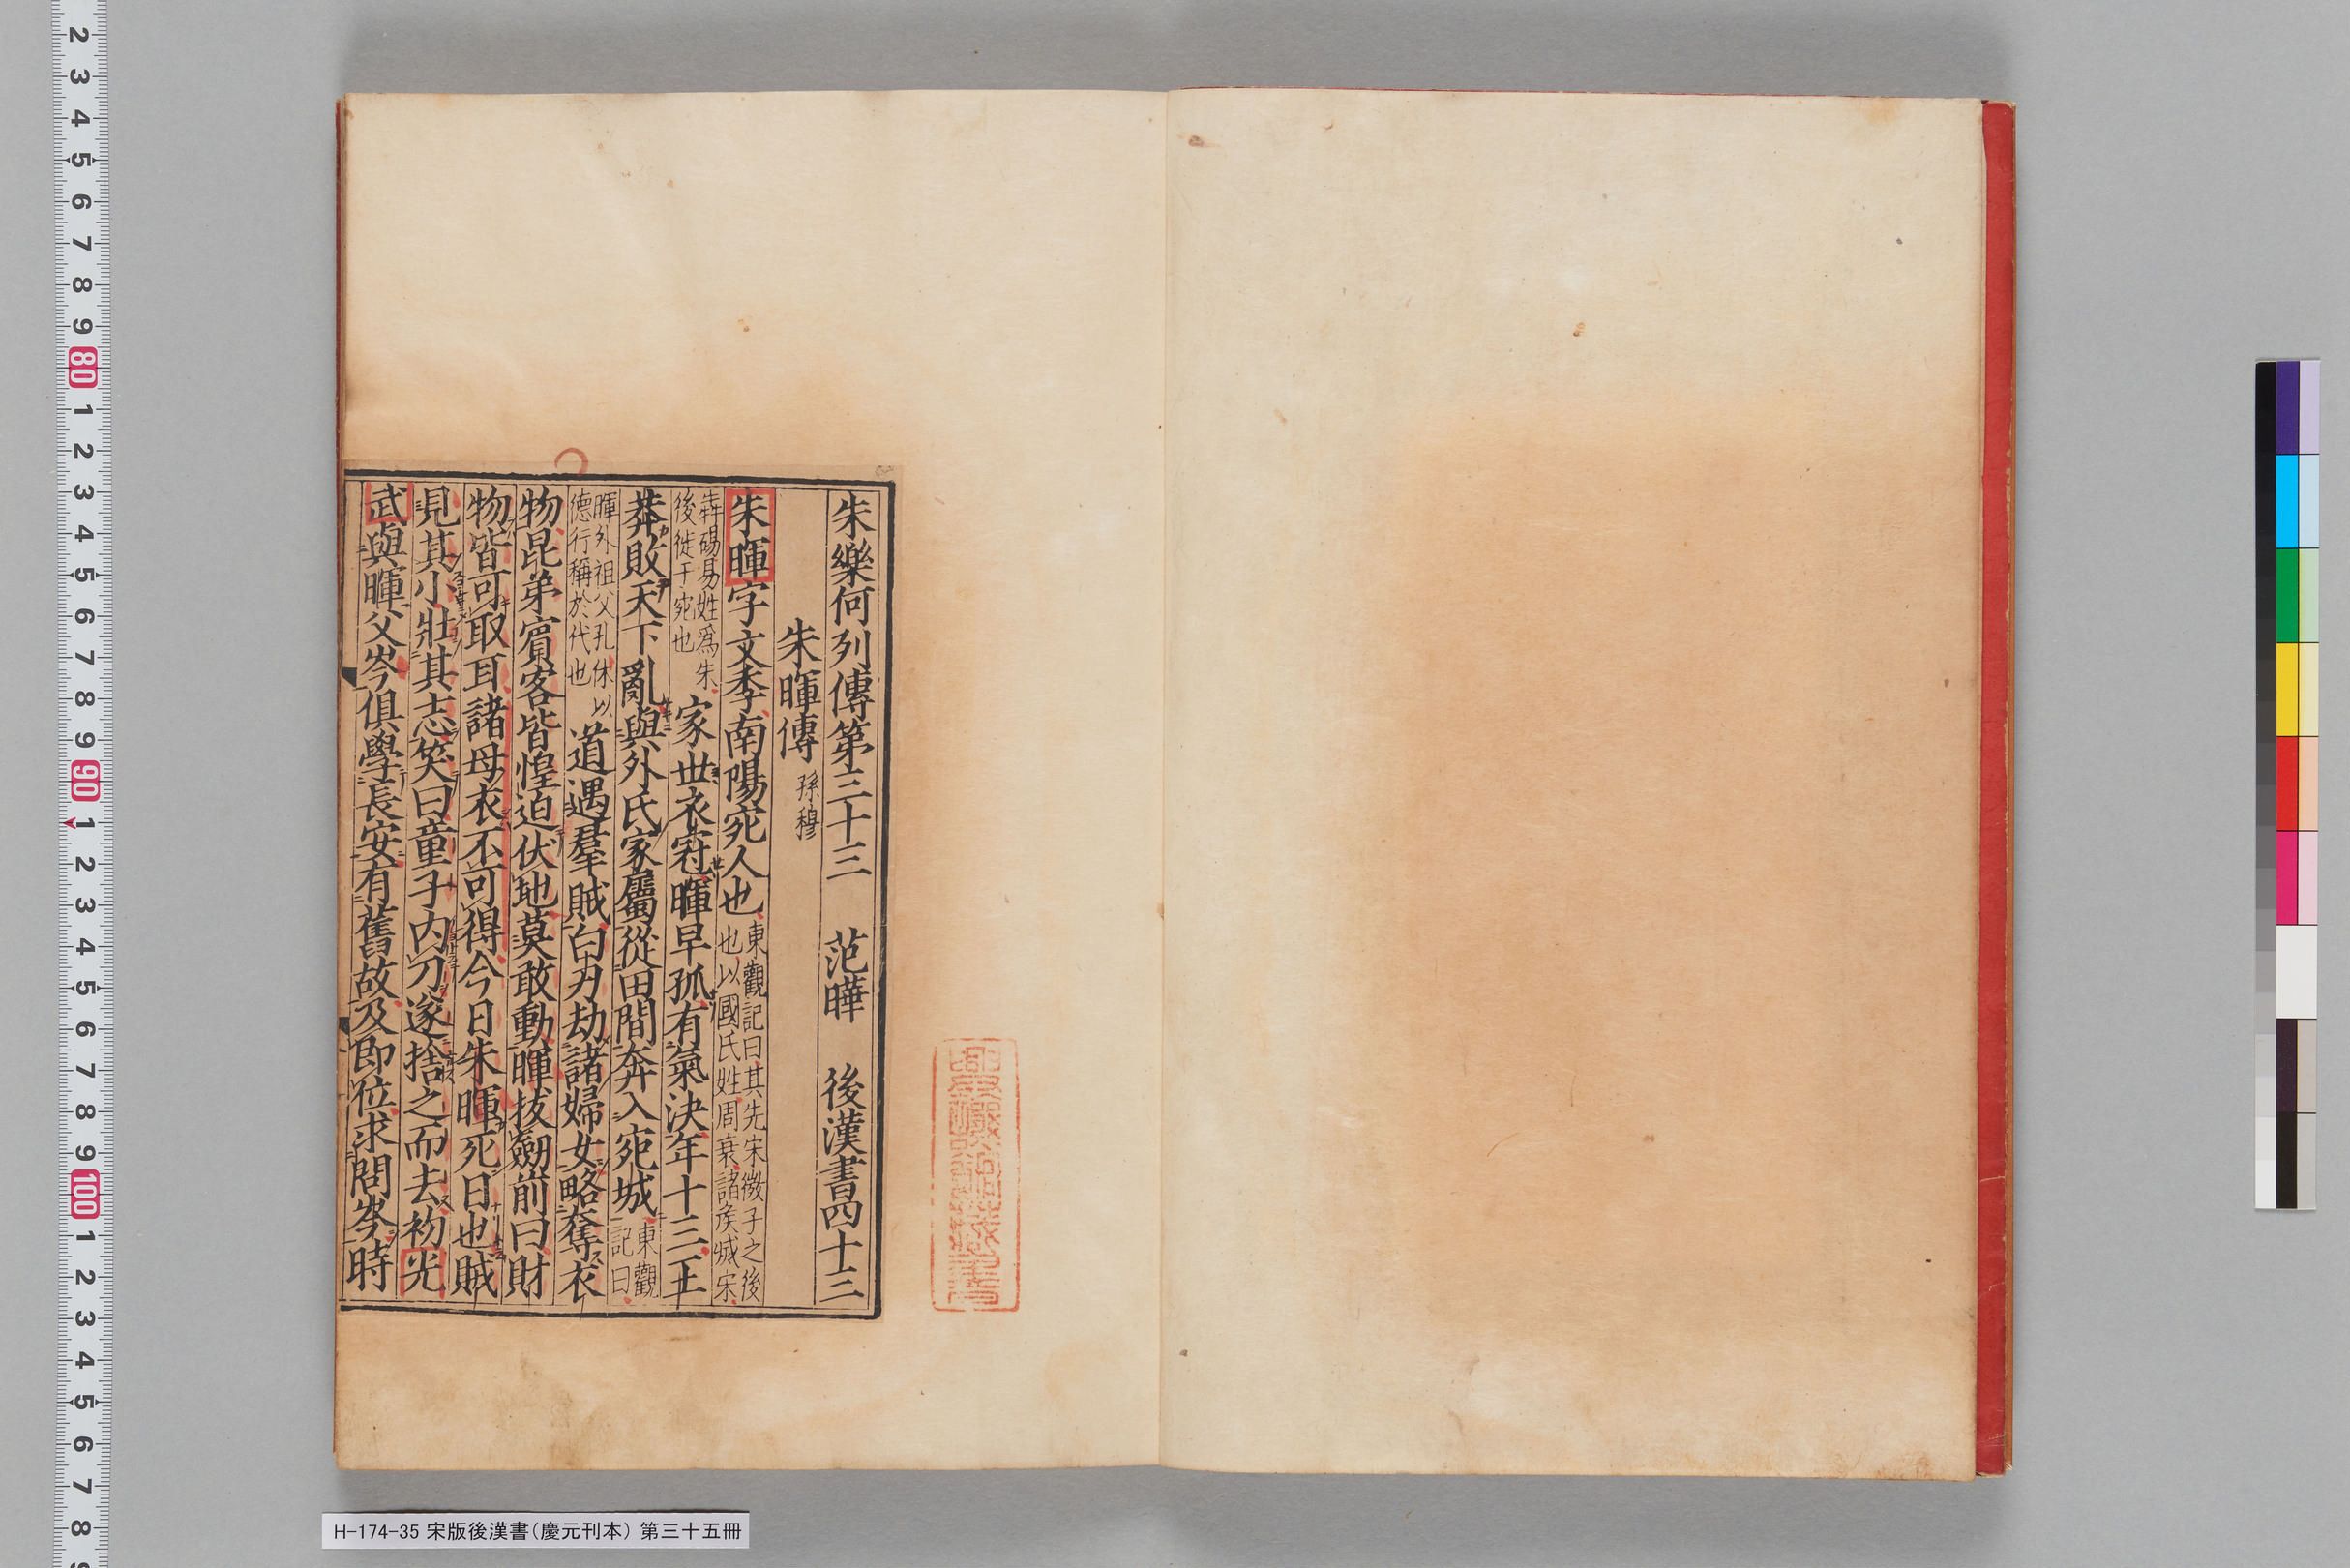 朱樂何列傳第三十三　范曄　後漢書四十三
朱暉傳 孫穆
朱暉字文季南陽宛人也 東觀記曰其先宋微子之後也以國氏姓周衰諸侯滅宋
犇碭易姓爲朱後徙于宛也 家世衣冠暉早孤有氣決年十三王
莽敗天下亂與外氏家屬從田間奔入宛城 東觀記曰
暉外祖父孔休以德行稱於代也 道遇羣賊白刃劫諸婦女略奪衣
物昆弟賓客皆惶迫伏地莫敢動暉拔劒前曰財
物皆可取耳諸母衣不可得今日朱暉死日也賊
見其小壯其志笑曰童子內刀遂捨之而去初光
武與暉父岑俱學長安有舊故及即位求問岑時
H-174-35 宋版後漢書（慶元刊本） 第三十五冊
2
3
4
5
6
7
8
9
80
1
2
3
4
5
6
7
8
9
90
1
2
3
4
5
6
7
8
9
100
1
2
3
4
5
6
7
8